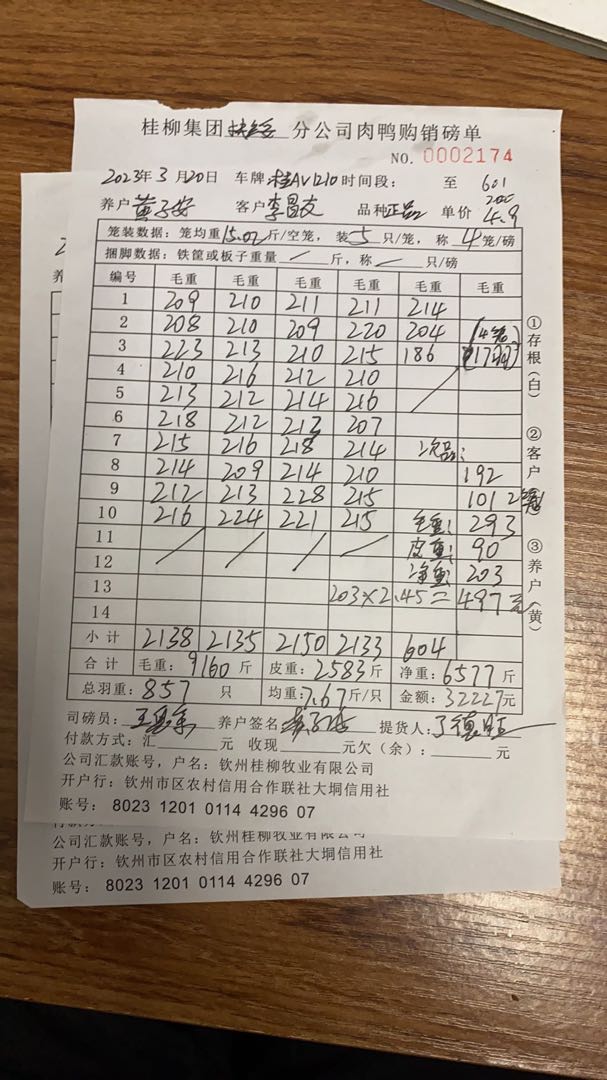 桂柳集团 分公司肉鸭购销磅单
NO. 0002174
2023年3月20日 车牌桂AV1210时间段: 至 601
养户黄子安 客户李昌友 品种正品 单价4.9
笼装数据:笼均重15.02斤/空笼,装5只/笼,称4笼/磅
捆脚数据:铁筐或板子重量/斤,称/只/磅
编号 毛重 毛重 毛重 毛重 毛重 毛重
1 209 210 211 211 214
2 208 210 209 220 204 (4笼
3 223 213 210 215 186
4 210 216 212 210 /
5 213 212 214 216
6 218 212 213 207
7 215 216 218 214 次品:
8 214 209 214 210 192
9 212 213 228 215 101
10 216 224 221 215 毛重: 293
11 / / / / 皮重: 90
12 净重: 203
13 203×2.45=497元
14
小计 2138 2135 2150 2133 604
合计 毛重:9160斤 皮重:2583斤 净重:6577斤
总羽重:857 只 均重:7.67斤/只 金额:32227元
①存根(白) ②客户 ③养户(黄)
司磅员: 养户签名 提货人:
付款方式:汇 元 收现 元欠(余): 元
公司汇款账号,户名:钦州桂柳牧业有限公司
开户行:钦州市区农村信用合作联社大垌信用社
账号: 8023 1201 0114 4296 07
公司汇款账号,户名:钦州桂柳牧业有限公司
开户行:钦州市区农村信用合作联社大垌信用社
账号: 8023 1201 0114 4296 07